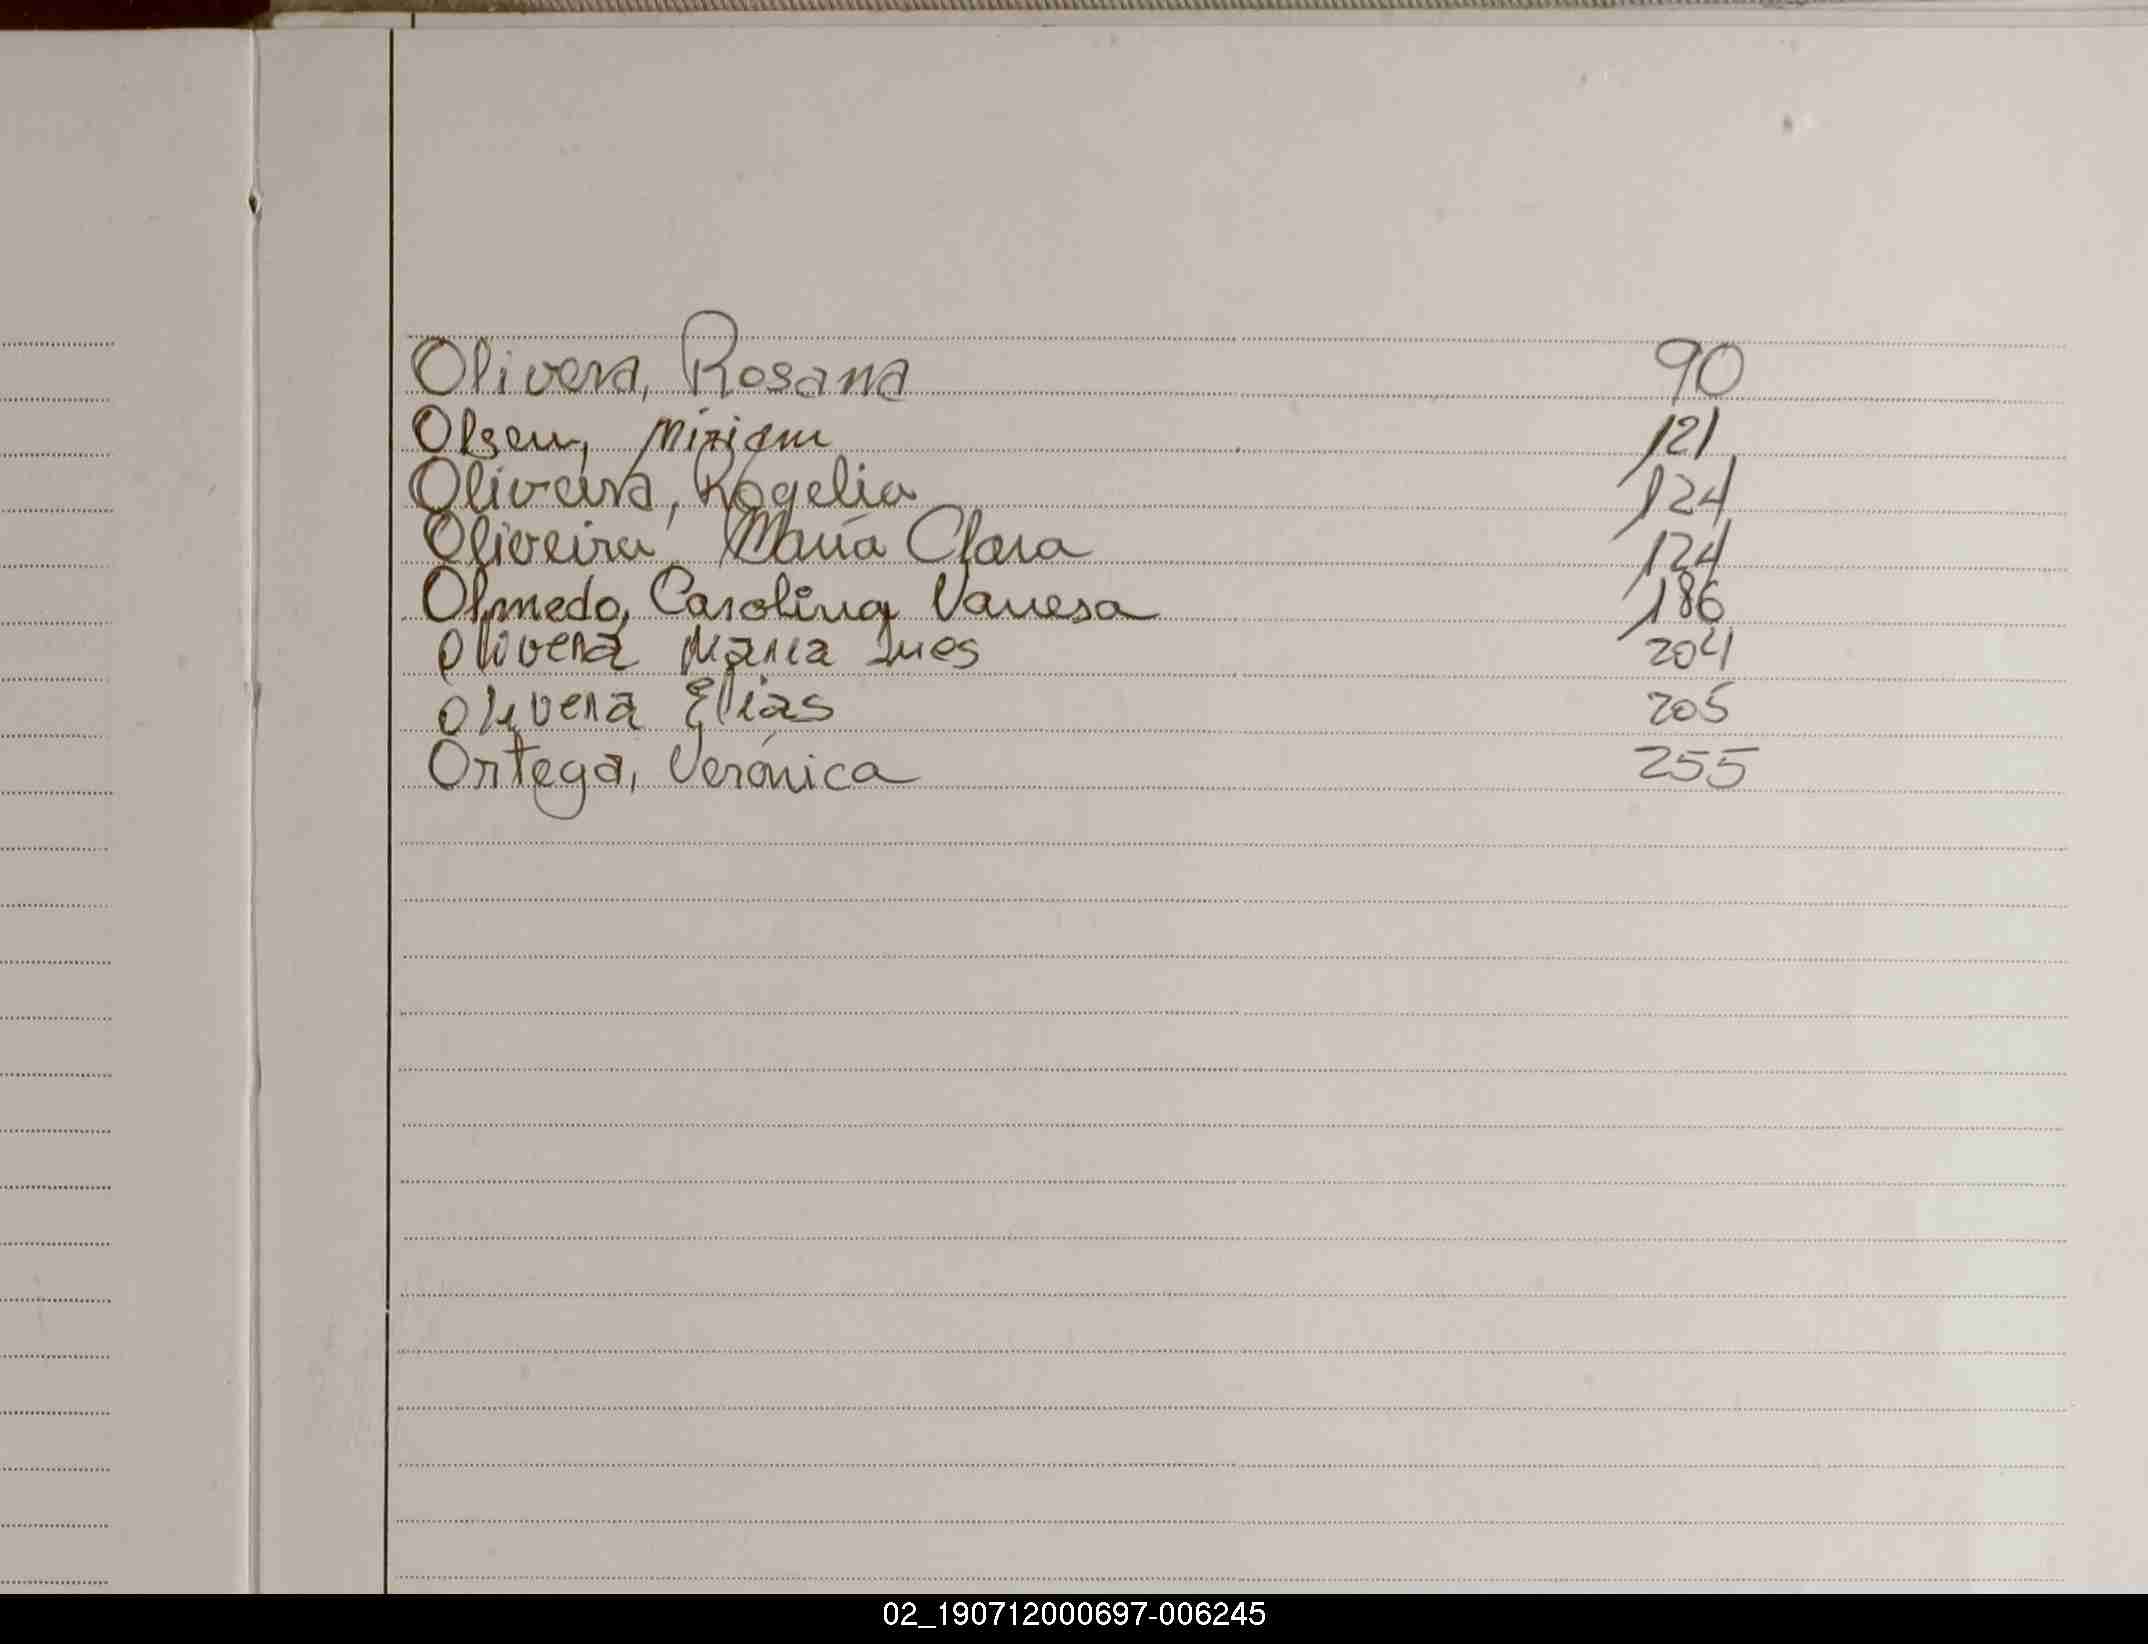 Olivera, Rosana 90
Olsen, Miriam 121
Oliveira, Rogelia 124
Oliveira María Clara 124
Olmedo, Carolina Vanesa 186
Olivera Maria Ines 204
Olivera Elias 205
Ortega, Verónica 255
02_190712000697-006245